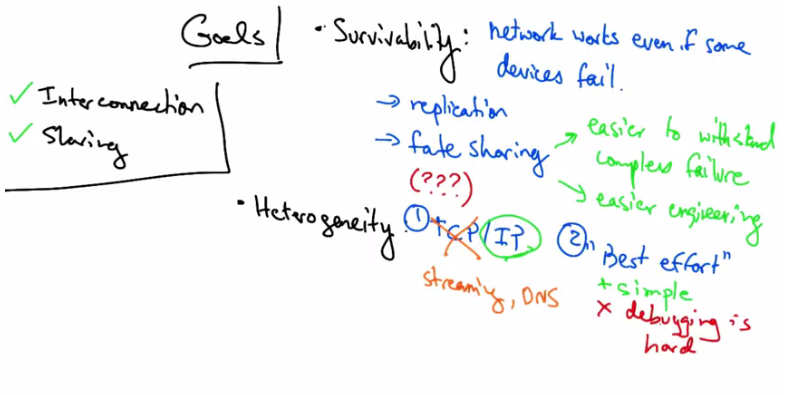 Goals
✓ Interconnection
✓ Sharing
• Survivability: network works even if some
devices fail.
→ replication
→ fate sharing
(???)
→ easier to withstand
complex failure
→ easier engineering
• Heterogeneity: ① TCP/IP
streaming, DNS
② "Best effort"
+ simple
x debugging is
hard